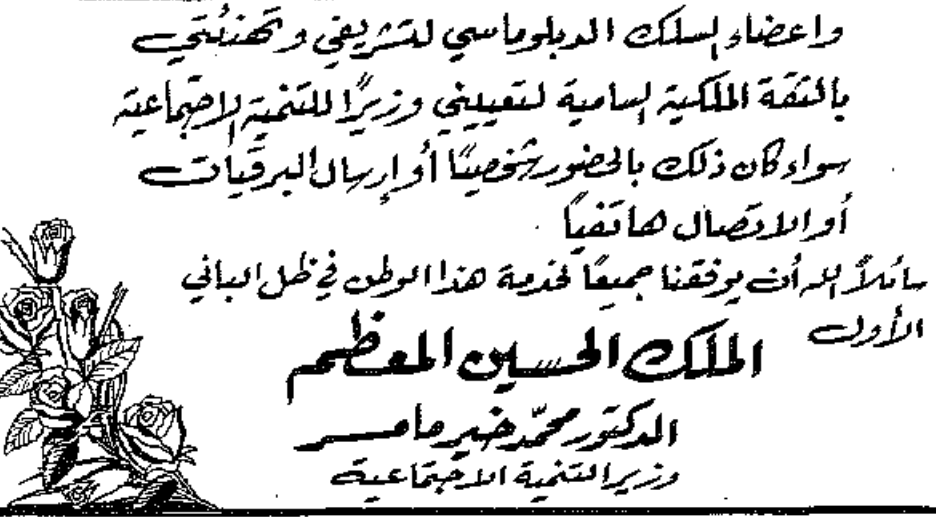 واعضاء السلك الدبلوماسي لتشريفي وتهنئتي
بالثقة الملكية السامية لتعييني وزيرًا للتنمية الاجتماعية
سواء كان ذلك بالحضور شخصيًا أو إرسال البرقيات
أو الاتصال هاتفيًا
سائلاً الله أن يوفقنا جميعًا لخدمة هذا الوطن في ظل الباني
الأول
الملك الحسين المعظم
الدكتور محمّد خير مامسر
وزير التنمية الاجتماعية